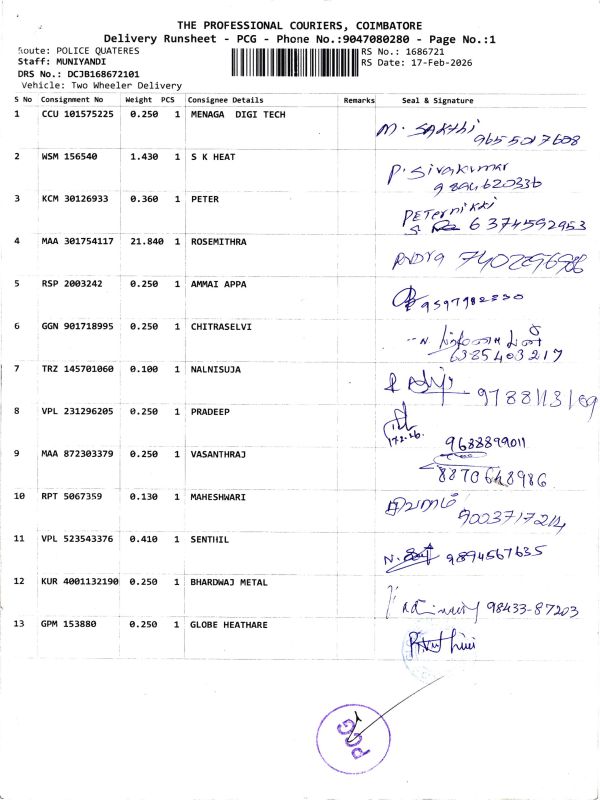 THE PROFESSIONAL COURIERS, COIMBATORE
Delivery Runsheet - PCG - Phone No.:9047080280 - Page No.:1
Route: POLICE QUATERES
RS No.: 1686721
Staff: MUNIYANDI
RS Date: 17-Feb-2026
DRS No.: DCJB168672101
Vehicle: Two Wheeler Delivery
S No Consignment No Weight PCS Consignee Details Remarks Seal & Signature
1 CCU 101575225 0.250 1 MENAGA DIGI TECH
M. SAKTHI
9655017608
2 WSM 156540 1.430 1 S K HEAT
P. Sivakumar
9894620336
3 KCM 30126933 0.360 1 PETER
PETER nikki
6374592953
4 MAA 301754117 21.840 1 ROSEMITHRA
5 RSP 2003242 0.250 1 AMMAI APPA
6 GGN 901718995 0.250 1 CHITRASELVI
6385403217
7 TRZ 145701060 0.100 1 NALNISUJA
9788113169
8 VPL 231296205 0.250 1 PRADEEP
17.2.26.
9688899011
9 MAA 872303379 0.250 1 VASANTHRAJ
8870648986
10 RPT 5067359 0.130 1 MAHESHWARI
9003717214
11 VPL 523543376 0.410 1 SENTHIL
9894567635
12 KUR 4001132190 0.250 1 BHARDWAJ METAL
98433-87203
13 GPM 153880 0.250 1 GLOBE HEATHARE
PCG